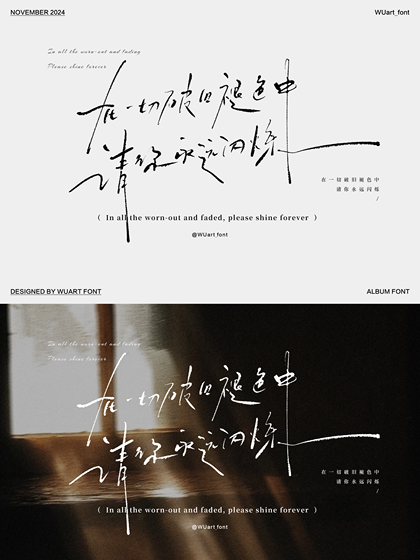 NOVEMBER 2024
WUart_font
In all the worn-out and fading
Please shine forever
在一切破旧褪色中
请你永远闪烁
在一切破旧褪色中
请你永远闪烁
/
( In all the worn-out and faded, please shine forever )
@WUart_font
DESIGNED BY WUART FONT
ALBUM FONT
In all the worn-out and fading
Please shine forever
在一切破旧褪色中
请你永远闪烁
在一切破旧褪色中
请你永远闪烁
/
( In all the worn-out and faded, please shine forever )
@WUart_font